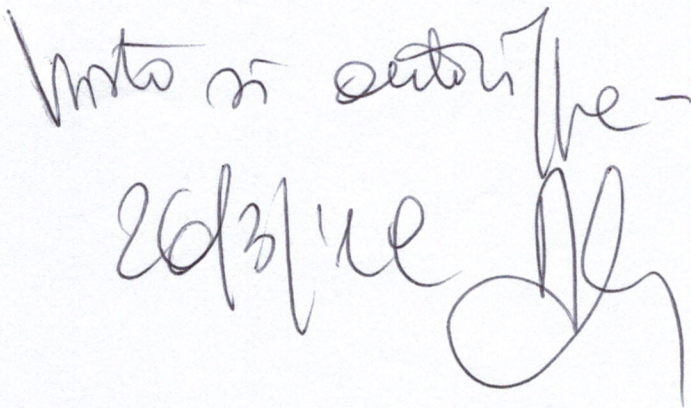 Visto si autorizza
26/3/'12